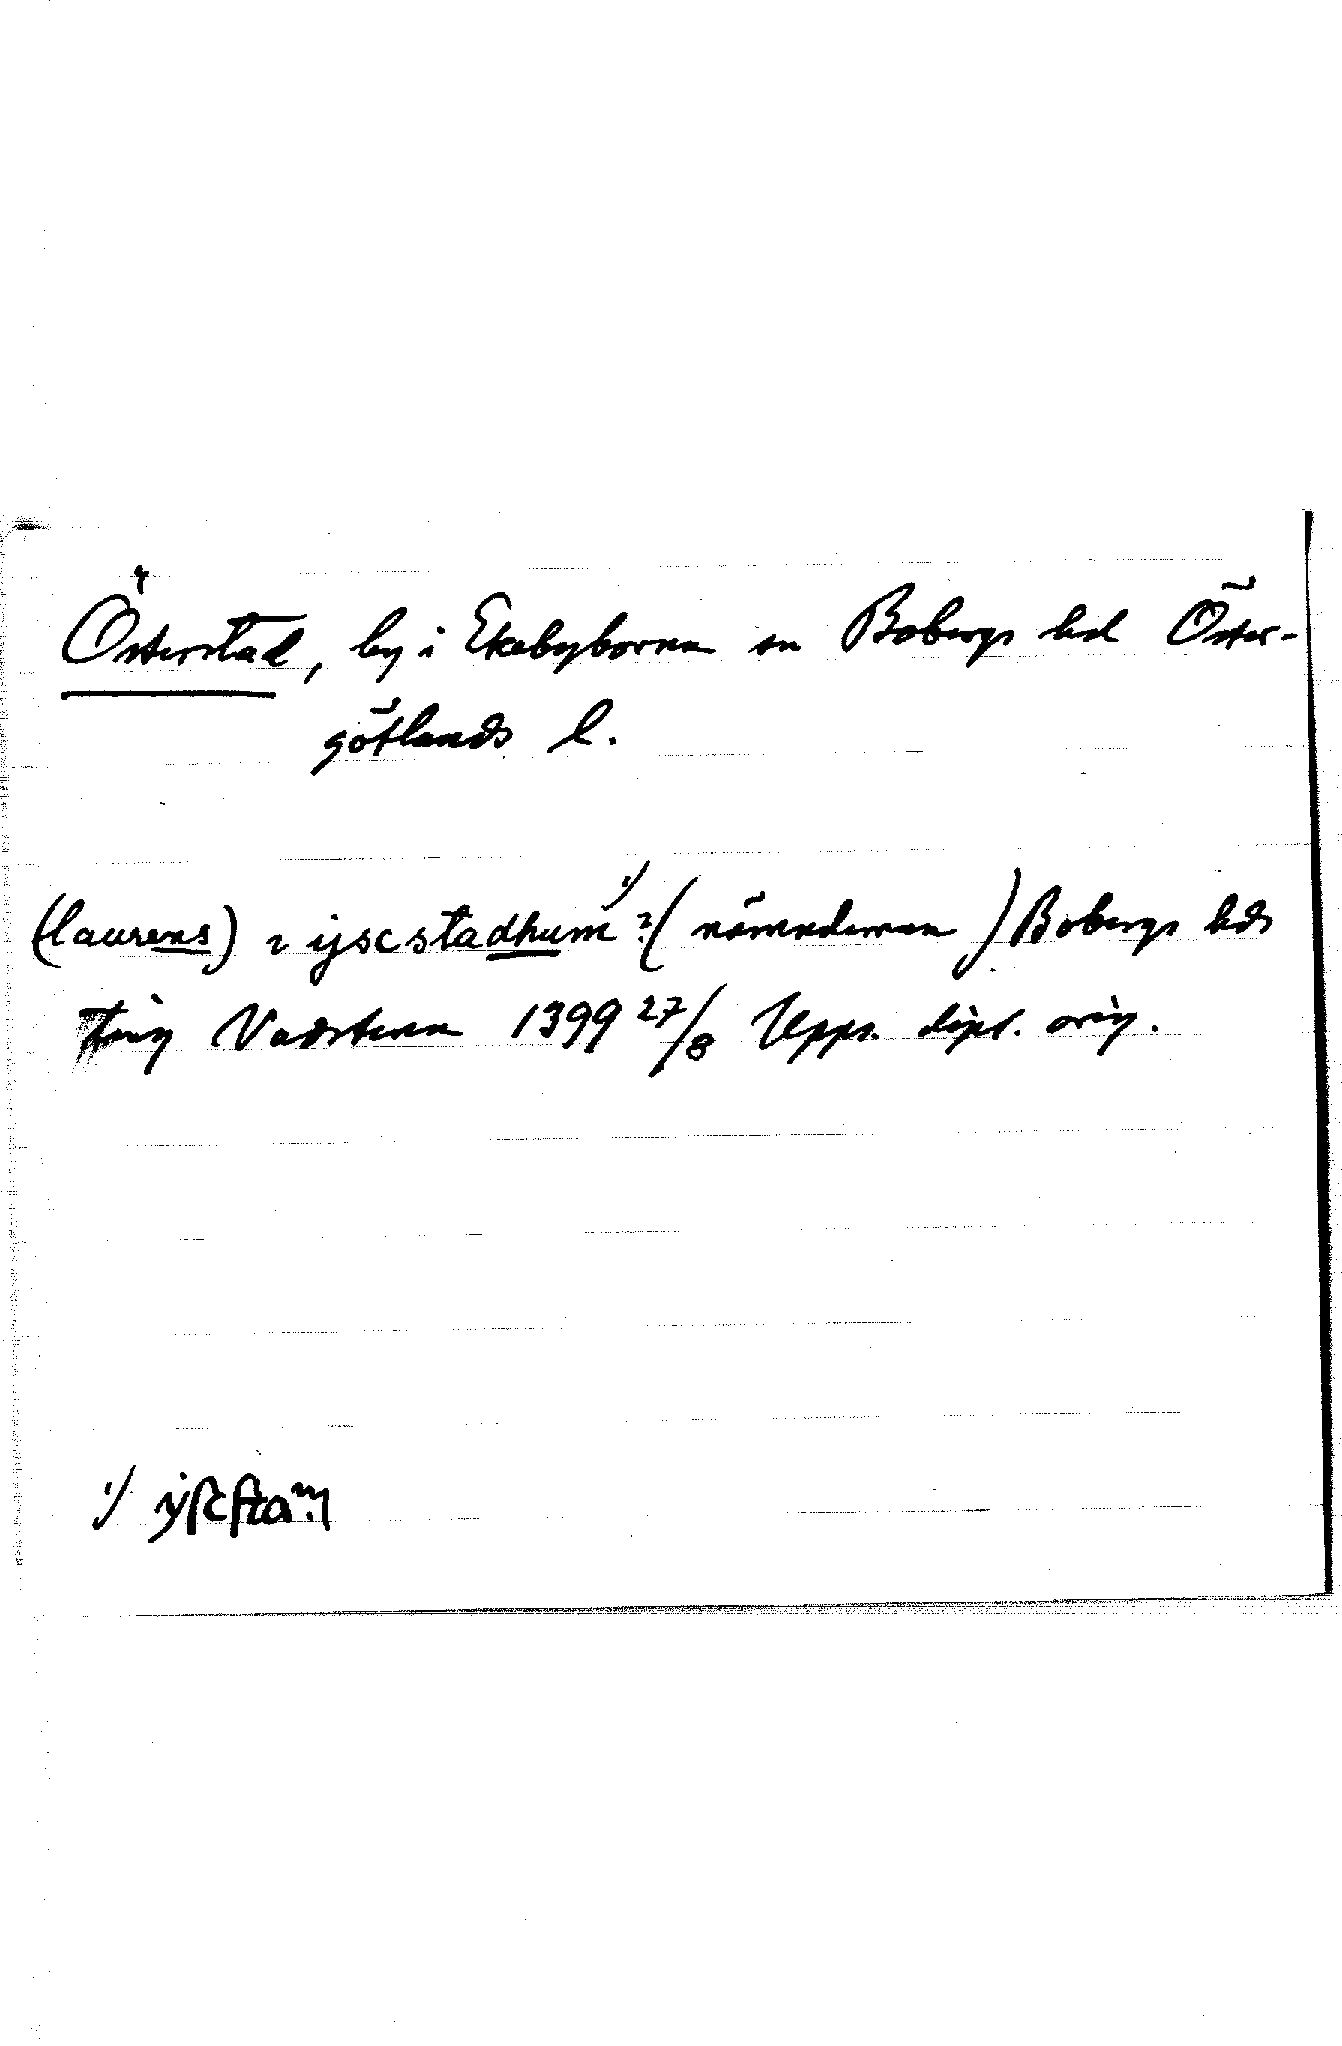 Österstad, by i Ekebyborna sn Bobergs hd Öster-
götlands l.
(laurens) i ysc stadhum ¹/ ? (nämndeman) Bobergs hds
ting Vadstena 1399 27/8 Upps. dipl. orig.
¹/ ẏſc ſta